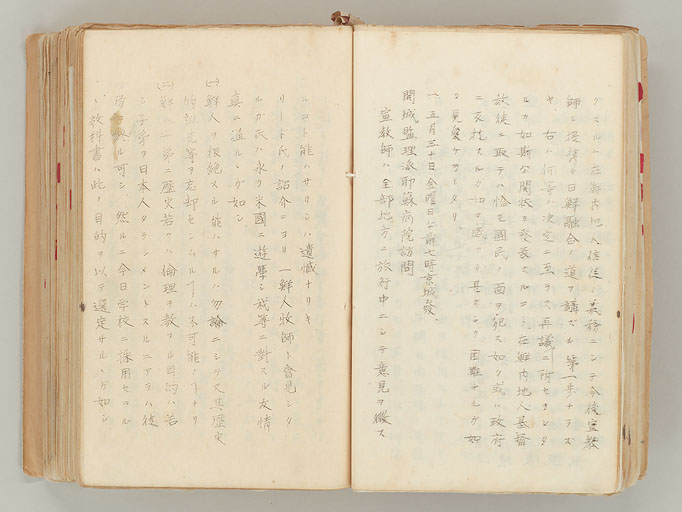 クスルハ在鮮内地人信徒ノ義務ニシテ今後宣教
師ト提携シ日鮮融合ノ道ヲ講ズル第一歩ナラズ
ヤ右ハ何等ノ決定ニ至ラズ再議ニ附セラレタ
ルガ如斯公開状ヲ発表スルコト在鮮内地人基督
教徒ニ取テハ恰モ国民ノ面ヲ犯ス如ク或ハ政府
ニ スルガ如キ感 困難ナルガ如
ク見受ケラレタリ
一、五月三十日金曜日午前七時京城発
開城監理派耶蘇病院訪問
宣教師ハ全部地方ニ旅行中ニシテ意見ヲ徴ス
ルコト能ハサリシハ遺憾ナリキ
リード氏ノ紹介ニヨリ一鮮人牧師ト会見シタ
ルガ氏ハ永ク米国ニ遊学シ我等ニ対スル友情
真ニ溢ルヽガ如シ
(一)鮮人ヲ根絶スル能ハサルハ勿論ニシテ又其歴史
的 等ヲ忘却センムルコトハ不可能ノコトナリ
(二)鮮人ニ第一ニ歴史若クハ倫理ヲ教フル目的ハ若
シ子等ヲ日本人タラシメントスルニアラハ徒
労 可シ然ルニ今日学校ニ採用セラル
ヽ教科書ハ此ノ目的ヲ以テ選定サルヽガ如シ